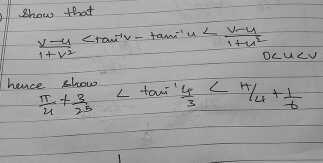 Show that
v-u/1+v² < tan⁻¹v - tan⁻¹u < v-u/1+u²
0<u<v
hence show
π/4 + 3/25 < tan⁻¹ 4/3 < π/4 + 1/6